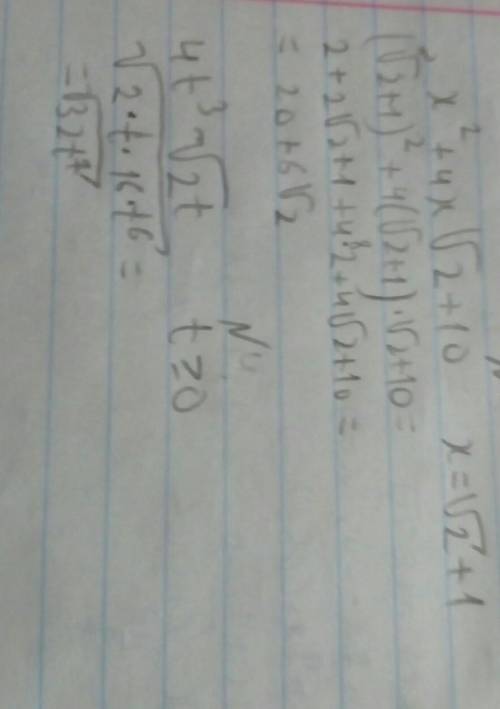 x² + 4x√2 + 10 x = √2 + 1
(√2+1)² + 4(√2+1)·√2+10 =
2 + 2√2 + 1 + 4·2 + 4√2 + 10 =
= 20 + 6√2
4t³√2t t ≥ 0
√2·t·16t⁶ =
= √32t⁷